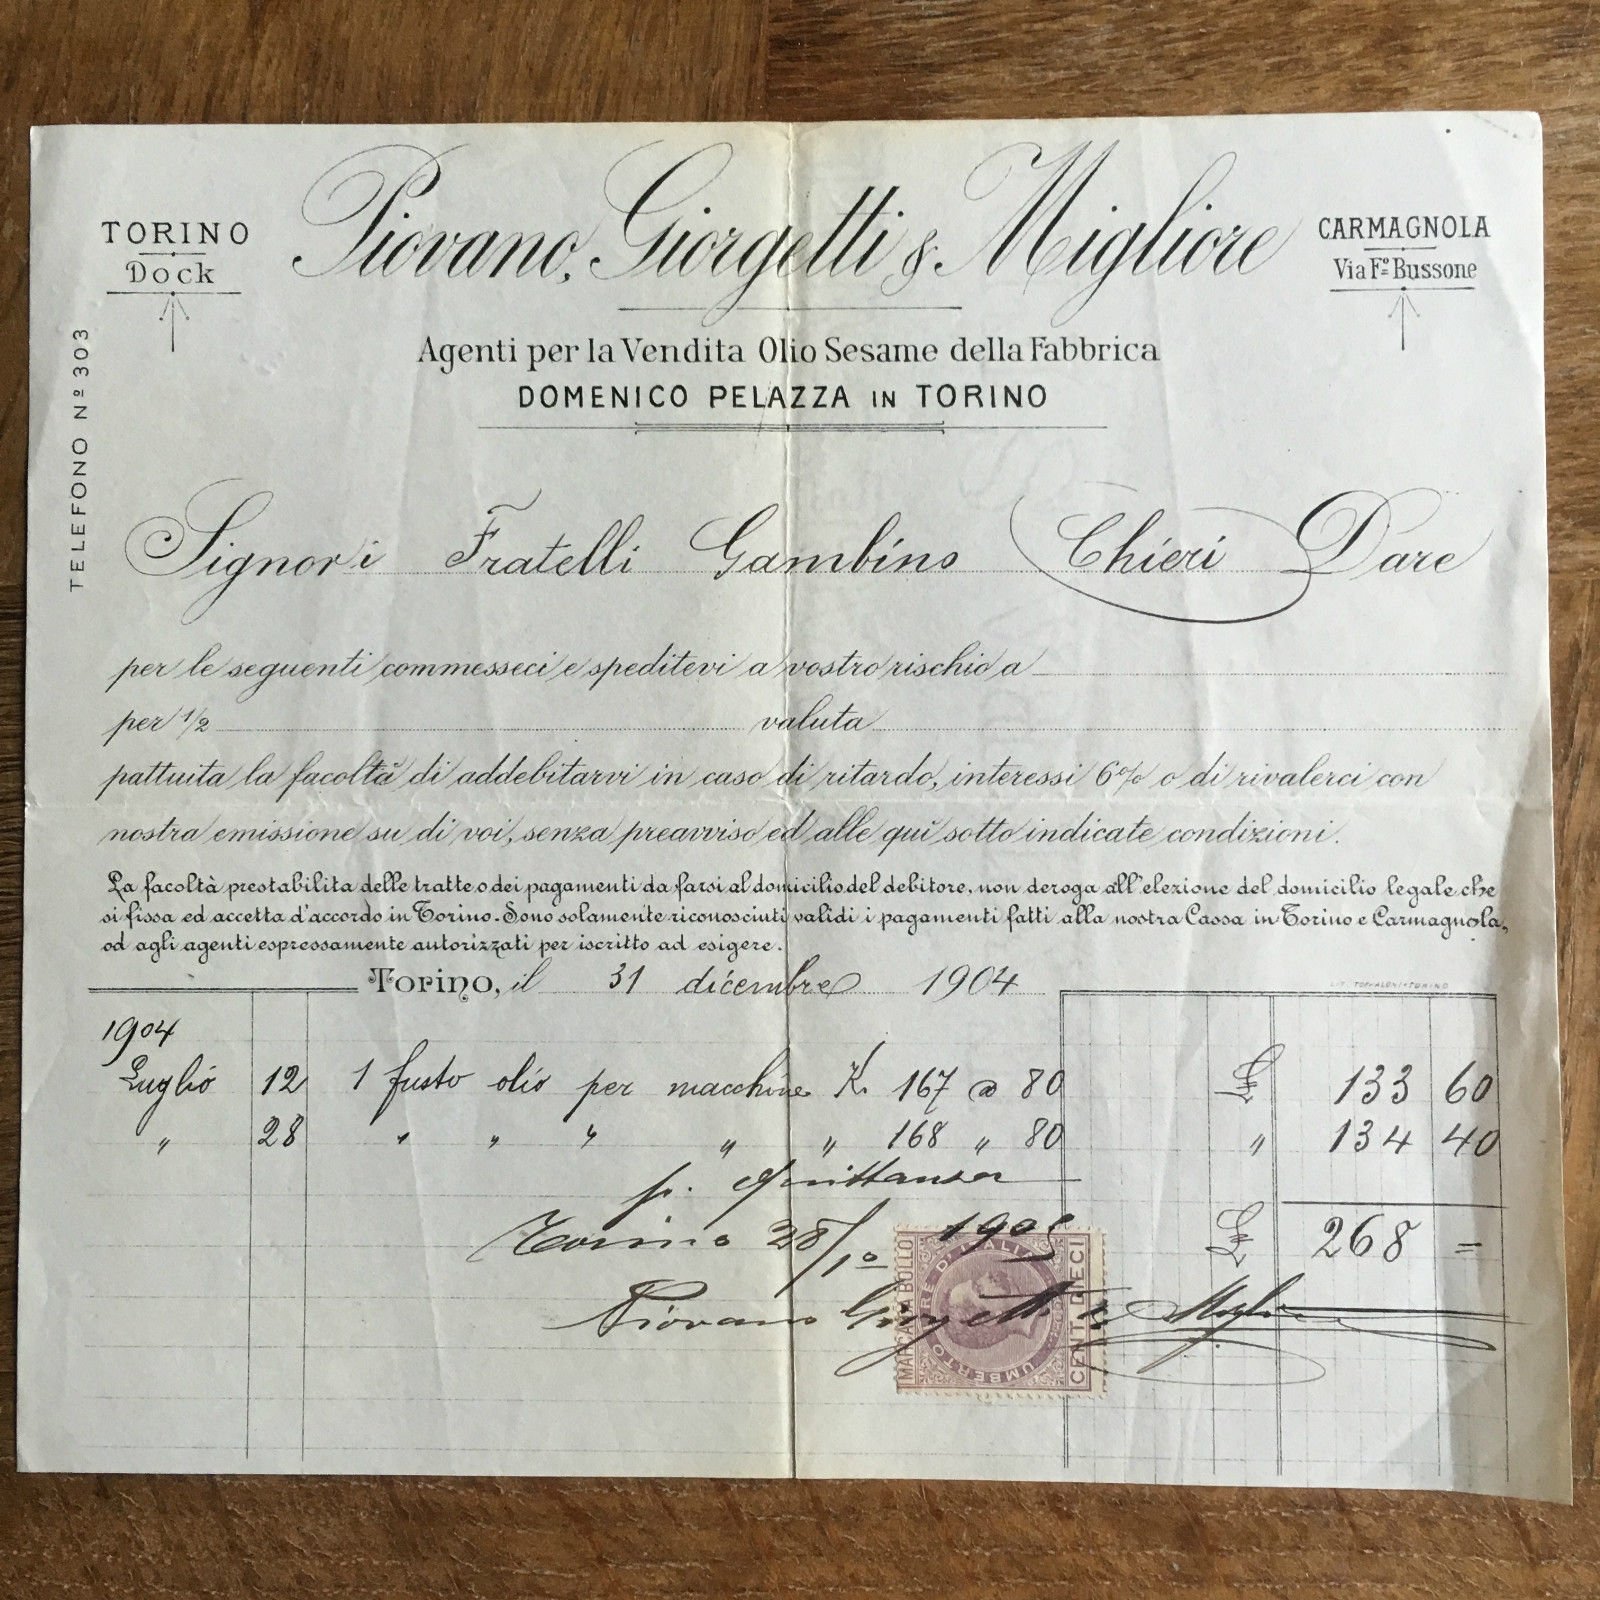 TORINO
Dock
Piovano, Giorgetti & Migliore
CARMAGNOLA
Via Fco Bussone
TELEFONO Nº 303
Agenti per la Vendita Olio Sesame della Fabbrica
DOMENICO PELAZZA IN TORINO
Signori Fratelli Gambino Chieri Dare
per le seguenti commesseci e speditevi a vostro rischio a
per 1/2 valuta
pattuita la facoltà di addebitarvi in caso di ritardo, interessi 6% o di rivalerci con
nostra emissione su di voi, senza preavviso ed alle qui sotto indicate condizioni.
La facoltà prestabilita delle tratte o dei pagamenti da farsi al domicilio del debitore, non deroga all'elezione del domicilio legale che
si fissa ed accetta d'accordo in Torino. Sono solamente riconosciuti validi i pagamenti fatti alla nostra Cassa in Torino e Carmagnola,
od agli agenti espressamente autorizzati per iscritto ad esigere.
Torino, il 31 dicembre 1904
1904
Luglio 12 1 fusto olio per macchine K. 167 a 80 £ 133 60
" 28 " " " " " 168 " 80 " 134 40
p. Quittanza
Torino 28/10 1905 £ 268 =
Piovano Giorgetti & Migliore
MARCA DA BOLLO
UMBERTO I RE D'ITALIA
CENT. DIECI